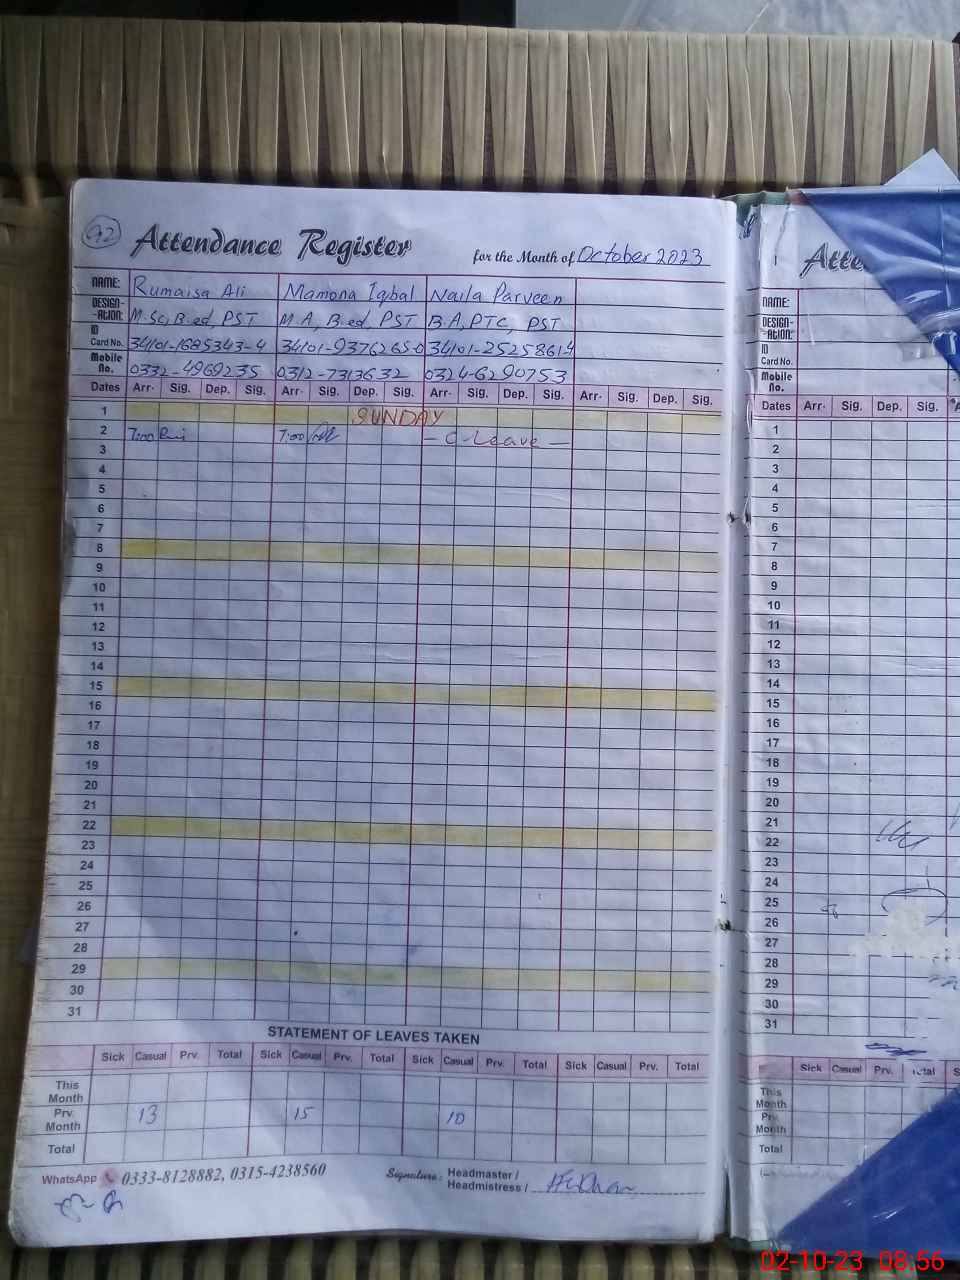 92
Attendance Register for the Month of October 2023
NAME: Rumaisa Ali Mamona Iqbal Naila Parveen
DESIGN-ATION: M.Sc, B.ed, PST M.A, B.ed, PST B.A, PTC, PST
ID Card No. 34101-1685343-4 34101-9376265-0 34101-2525861-4
Mobile No. 0332-4969235 0312-7313632 0324-6290753
Dates Arr. Sig. Dep. Sig. Arr. Sig. Dep. Sig. Arr. Sig. Dep. Sig. Arr. Sig. Dep. Sig.
1 SUNDAY
2 7:00 7:00 — C-Leave —
3
4
5
6
7
8
9
10
11
12
13
14
15
16
17
18
19
20
21
22
23
24
25
26
27
28
29
30
31
STATEMENT OF LEAVES TAKEN
Sick Casual Prv. Total Sick Casual Prv. Total Sick Casual Prv. Total Sick Casual Prv. Total
This Month
Prv. Month 13 15 10
Total
WhatsApp 0333-8128882, 0315-4238560 Signature: Headmaster / Headmistress /
Atte
NAME:
DESIGN-ATION:
ID Card No.
Mobile No.
Dates Arr. Sig. Dep. Sig.
1
2
3
4
5
6
7
8
9
10
11
12
13
14
15
16
17
18
19
20
21
22
23
24
25
26
27
28
29
30
31
Sick Casual Prv. Total
This Month
Prv. Month
Total
02-10-23 08:56